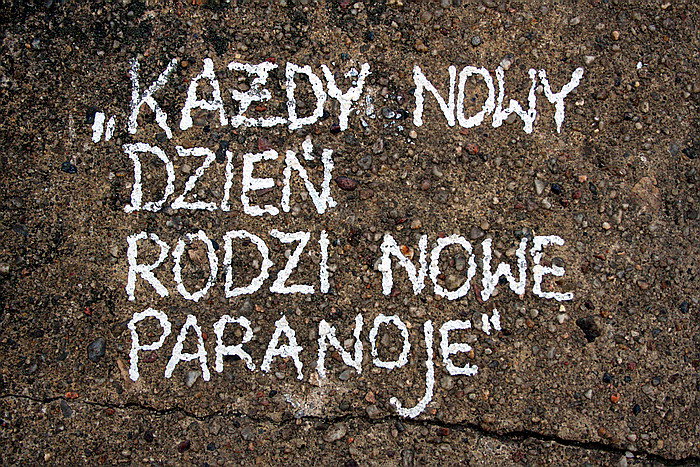 „KAŻDY NOWY
DZIEŃ
RODZI NOWE
PARANOJE"